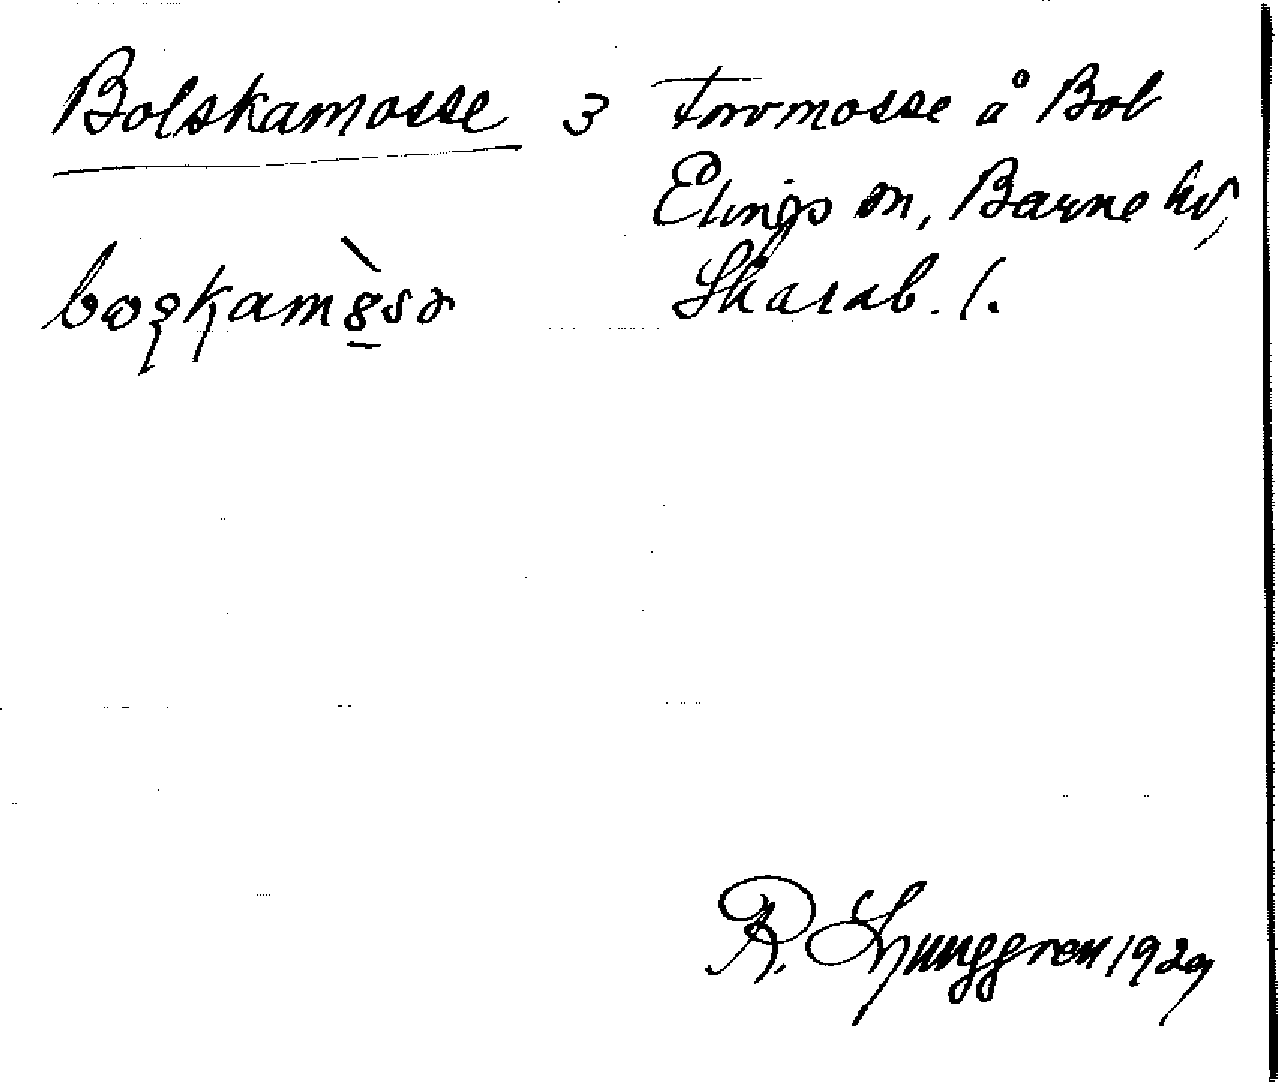 Bolskamosse 3 Torvmosse å Bol
Elings sn, Barne hd,
Skarab. l.
R. Ljunggren 1929